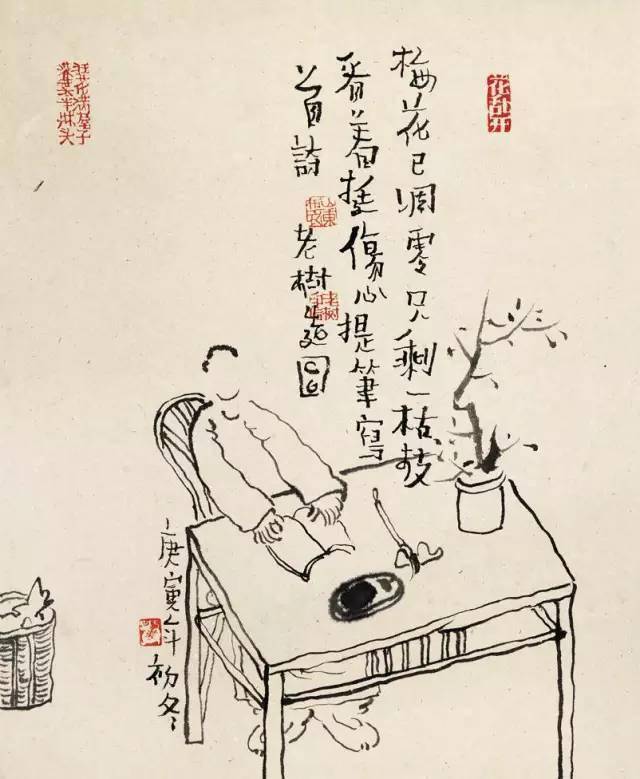 花乱开
梅花已凋零只剩一枯枝
看着挺傷心提筆寫
首詩 老樹
庚寅年初冬